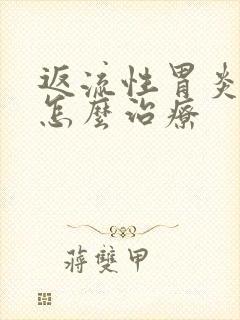 返流性胃炎
怎麼治療
蔣雙甲